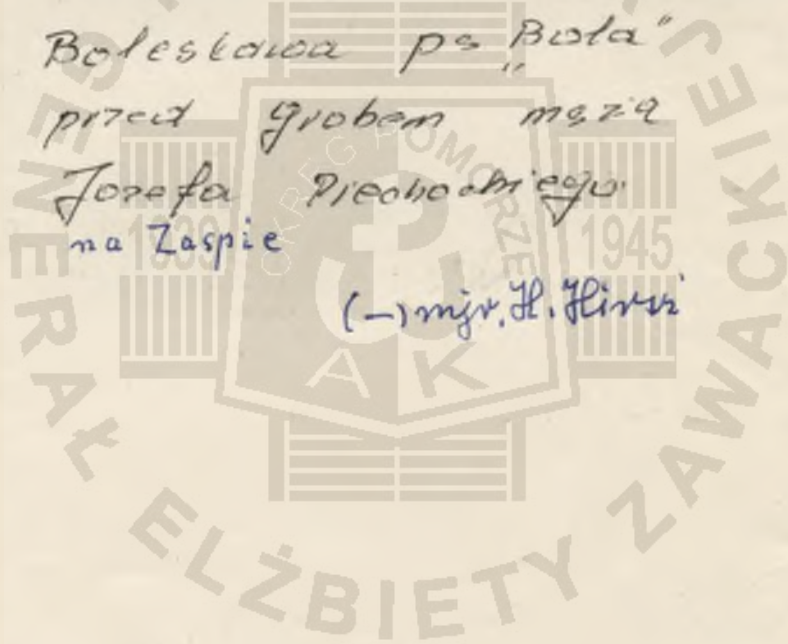 Bolesława ps „Bola"
przed grobem męża
Józefa Piechockiego
na Zaspie
(-) mjr. H.
OKRĘG POMORZE
1939 1945
AK
GENERAŁ ELŻBIETY ZAWACKIEJ